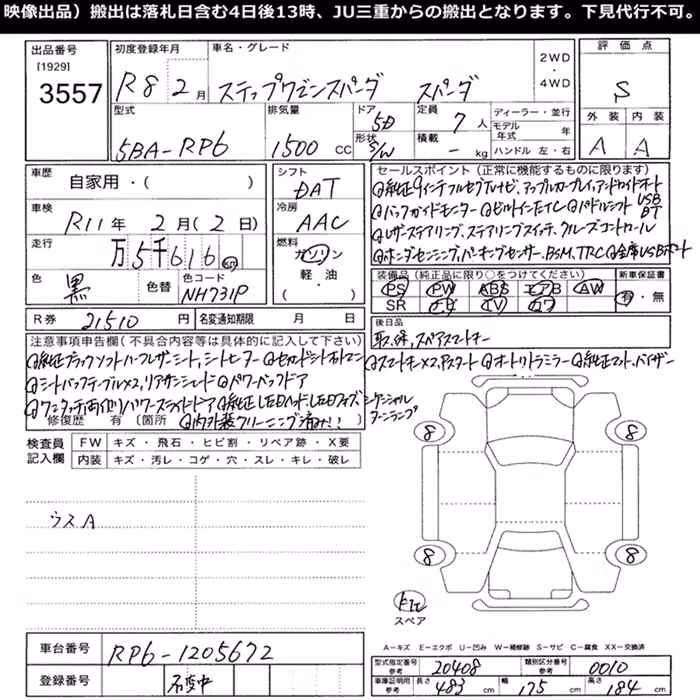 映像出品）搬出は落札日含む4日後13時、JU三重からの搬出となります。下見代行不可。
出品番号 初度登録年月 車名・グレード 2WD・4WD 評価点
[1929]
3557 R8 2月 ステップワゴンスパーダ スパーダ S
型式 排気量 ドア 定員 ディーラー・並行 外装 内装
5BA-RP6 1500cc 5D 7人 モデル年式 年 A A
形状 S/W 積載 - kg ハンドル 左・右
車歴 自家用・( ) シフト DAT セールスポイント（正常に機能するものに限ります）
車検 R11年2月(2日) 冷房 AAC
◎純正9インチフルセグTVナビ、アップルカープレイ、アンドロイドオート
◎バックガイドモニター ◎ビルトインETC ◎パドルシフト USB BT
◎レザーステアリング、ステアリングスイッチ、クルーズコントロール
◎ホンダセンシング、パーキングセンサー、BSM、TRC ◎金席USBポート
走行 万5千616km 燃料 ガソリン・軽油・( )
装備品（純正品に限り○をつけてください） 新車保証書
色 黒 色替 色コード NH731P
PS PW ABS エアB AW 有・無
SR カワ
R券 21510円 名変通知期限 月 日
後日品 取、保、スペアスマートキー
注意事項申告欄（不具合内容等は具体的に記入して下さい）
◎純正ブラックソフトハーフレザーシート、シートヒーター ◎セカンドシートオットマン ◎スマートキー×2、Pスタート ◎オートリトラミラー ◎純正マット、バイザー
◎シートバックテーブル×2、リアサンシェード ◎パワーバックドア
◎ワンタッチ両側パワースライドドア ◎純正LEDヘッド、LEDフォグ、シーケンシャルターンランプ
修復歴 有 〔箇所 ◎内外装クリーニング済み!!
検査員記入欄 FW キズ・飛石・ヒビ割・リペア跡・X要
内装 キズ・汚レ・コゲ・穴・スレ・キレ・破レ
ウスA
8 8
8 8
スペア
A－キズ E－エクボ U－凹み W－補修跡 S－サビ C－腐食 XX－交換済
車台番号 RP6-1205672
型式指定番号 参考 20408 類別区分番号 参考 0010
登録番号 不変中
車庫証明用 参考 長さ 483cm 幅 175cm 高さ 184cm